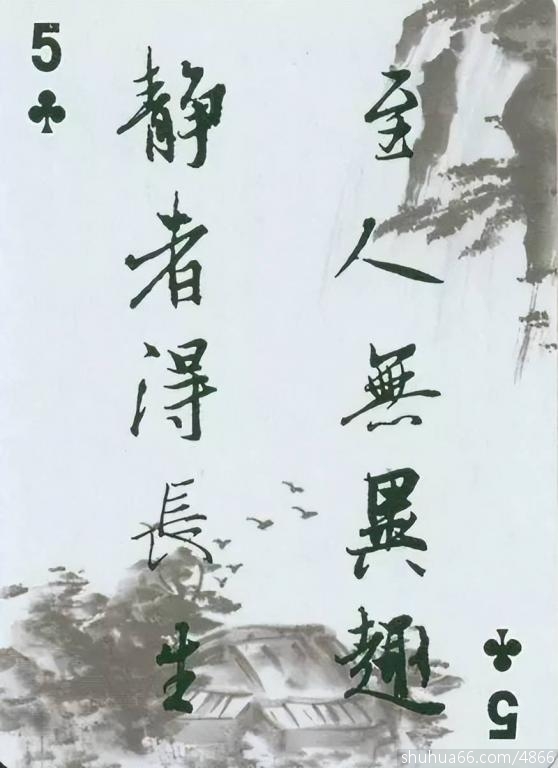 5
至人無異趣
静者得長生
5
shuhua66.com/4866